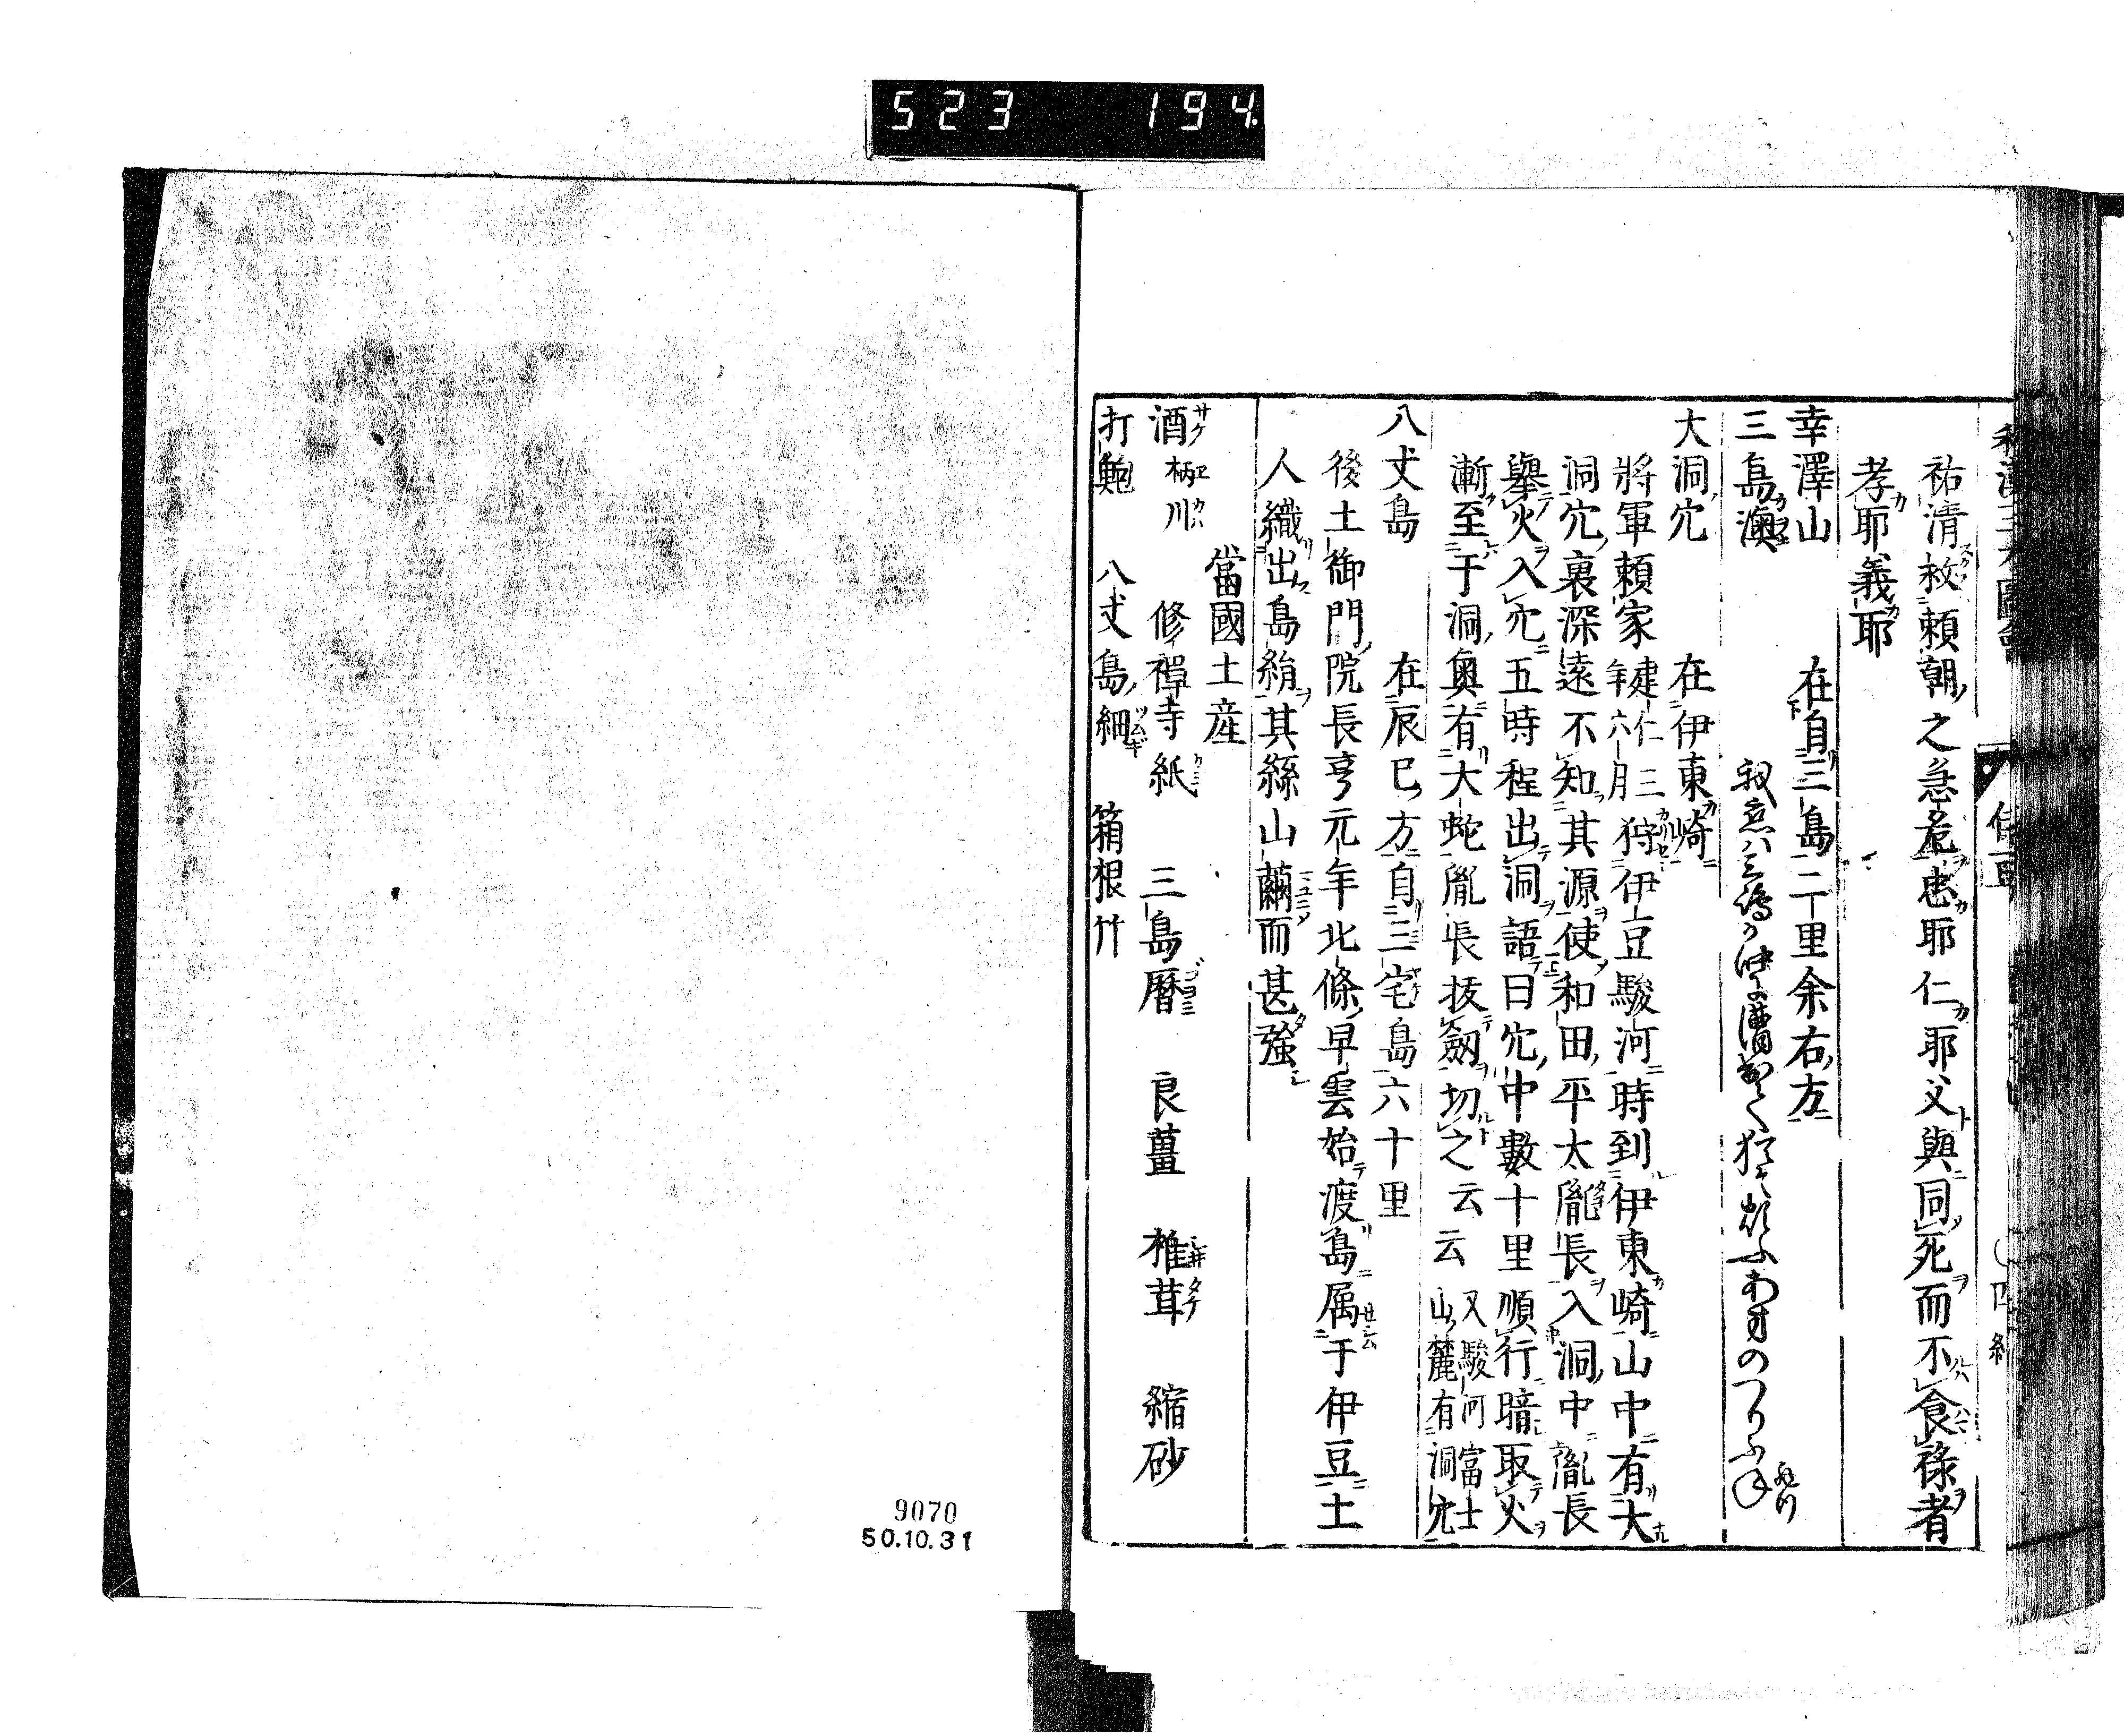 523 194
祐清救頼朝之急危忠耶仁耶父與同死而不食祿者
孝耶義耶
幸澤山 在自三島二里余右方
三島澳
大洞穴 在伊東崎
將軍頼家建仁三年六月狩伊豆駿河時到伊東崎山中有大
洞穴裏深遠不知其源使和田平太胤長入洞中胤長
擧火入穴五時程出洞語曰穴中數十里順行暗取火
漸至于洞奥有大蛇胤長抜劔切之云云 又駿河富士山麓有洞穴
八丈島 在辰巳方自三宅島六十里
後土御門院長享元年北條早雲始渡島属于伊豆土
人織出島絹其絲山繭而甚強
當國土産
酒柄川 修禪寺紙 三島暦 良薑 椎茸 縮砂
打鮑 八丈島細 箱根竹
9070
50.10.31